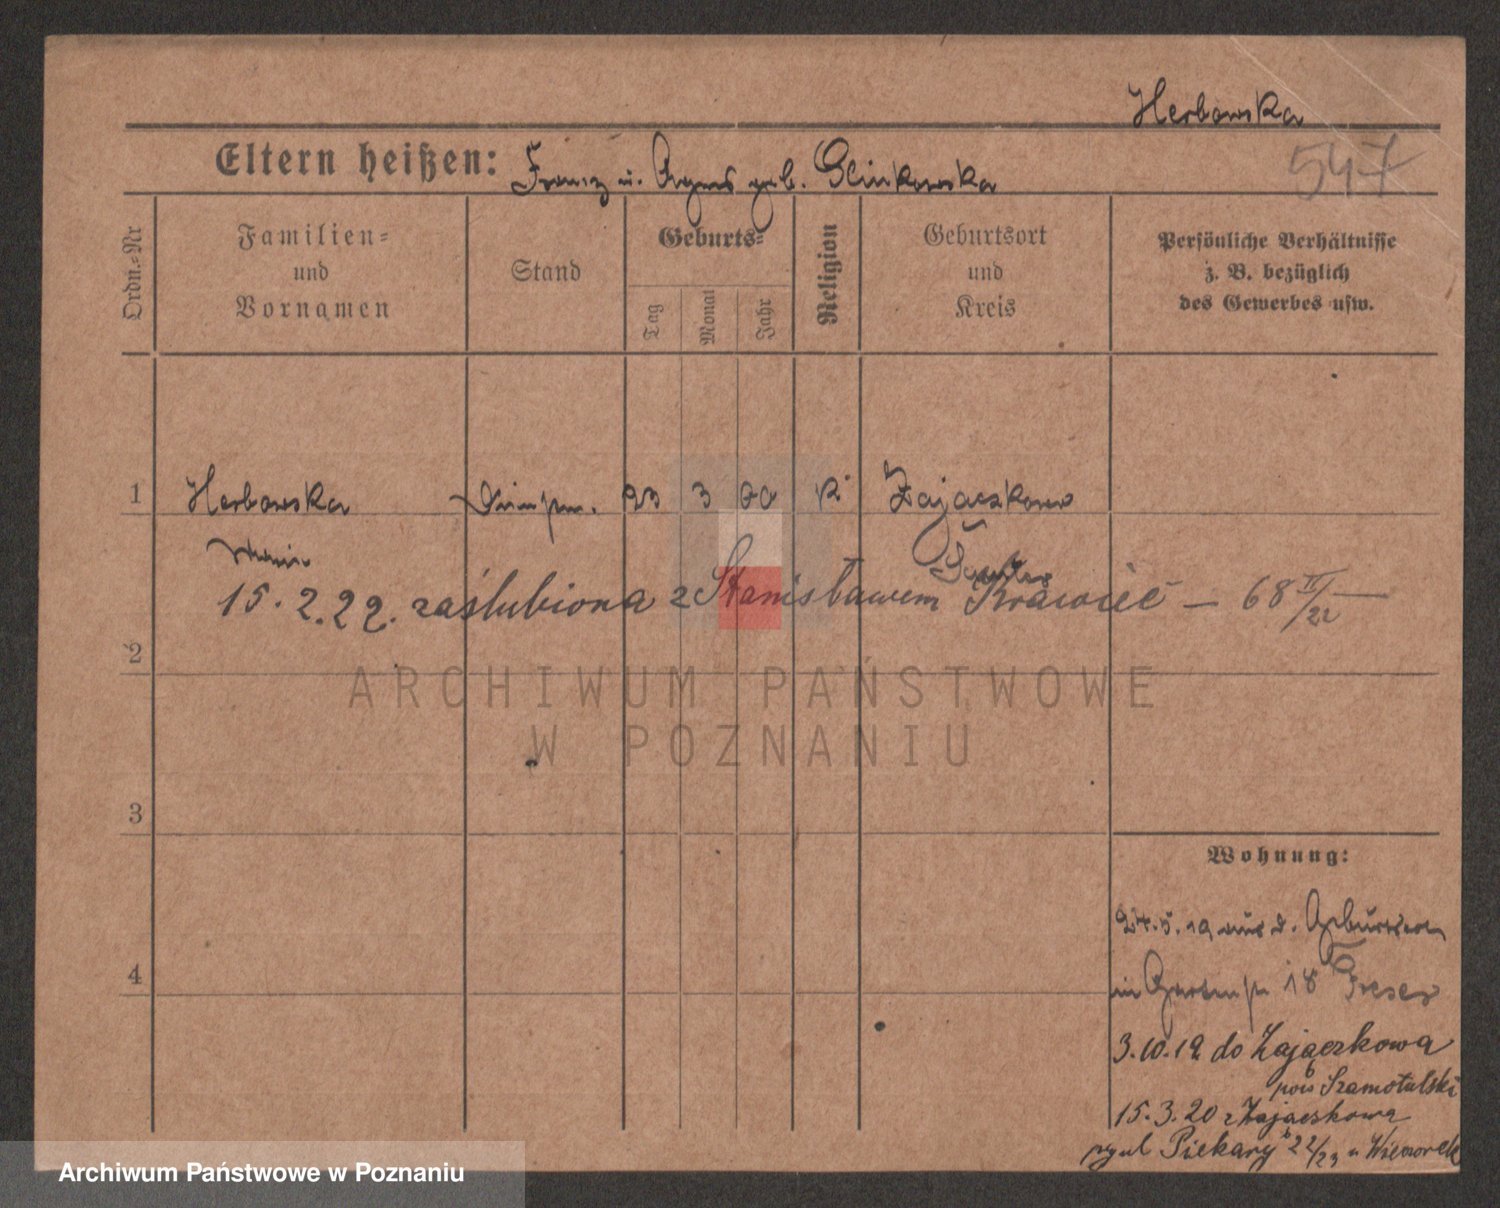 Herbowska
Eltern heißen: Franz u. Agnes geb. Glinkowska
547
Ordn.-Nr
Familien-
und
Vornamen
Stand
Geburts-
Tag
Monat
Jahr
Religion
Geburtsort
und
Kreis
Persönliche Verhältnisse
z. B. bezüglich
des Gewerbes usw.
1 Herbowska 23 3 00 K Zajaczkowo
Samter
15. 2. 22. zaślubiona z Stanisławem Krawiec – 68 III/22 –
2
3
4
Wohnung:
24.5.19 aus d. Geburtsort
in Gartenstr 18 Treser
3.10.19 do Zajączkowa
pow Szamotulski
15.3.20 z Zajączkowa
Piekary 22/23 u Wieczorek
ARCHIWUM PAŃSTWOWE
W POZNANIU
Archiwum Państwowe w Poznaniu